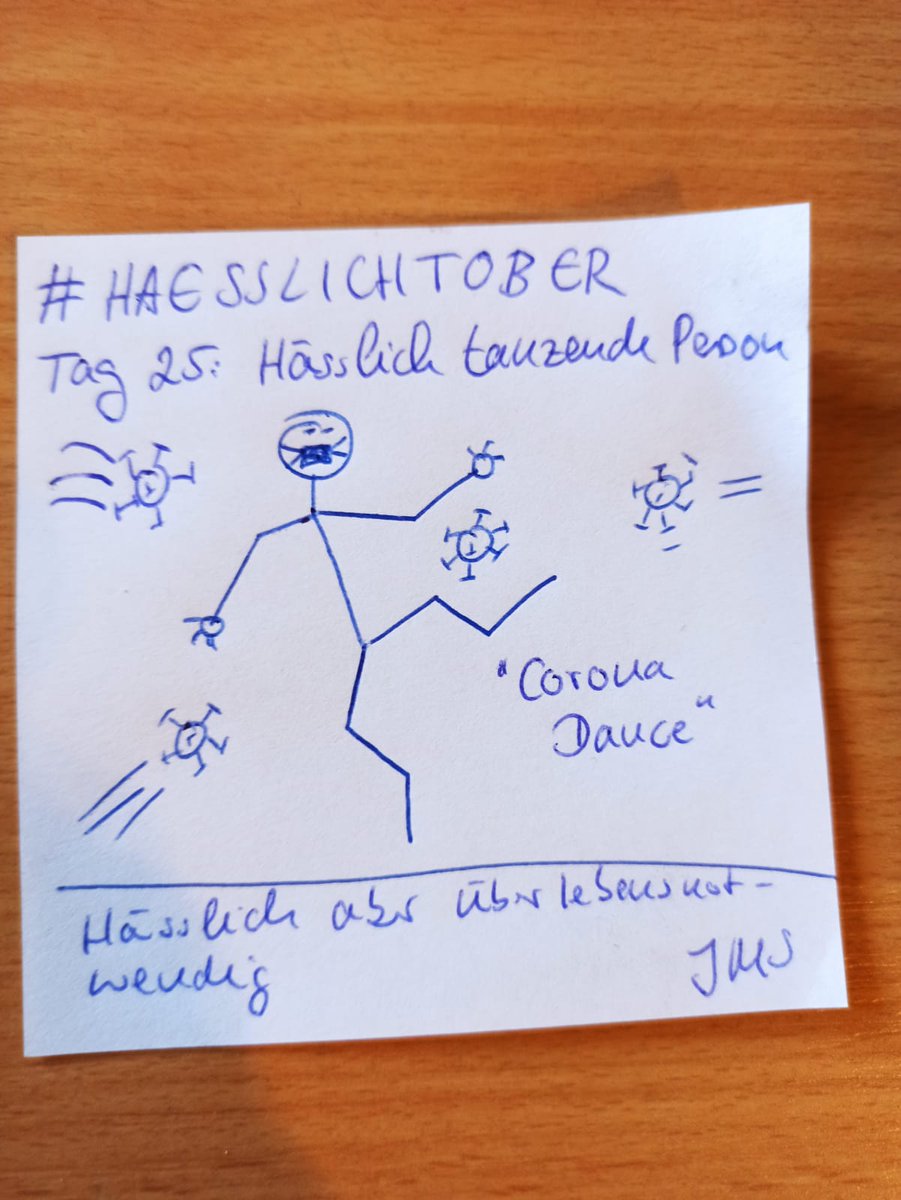 # HAESSLICHTOBER
Tag 25: Hässlich tanzende Person
"Corona
Dance"
Hässlich aber überlebensnot-
wendig
JMS